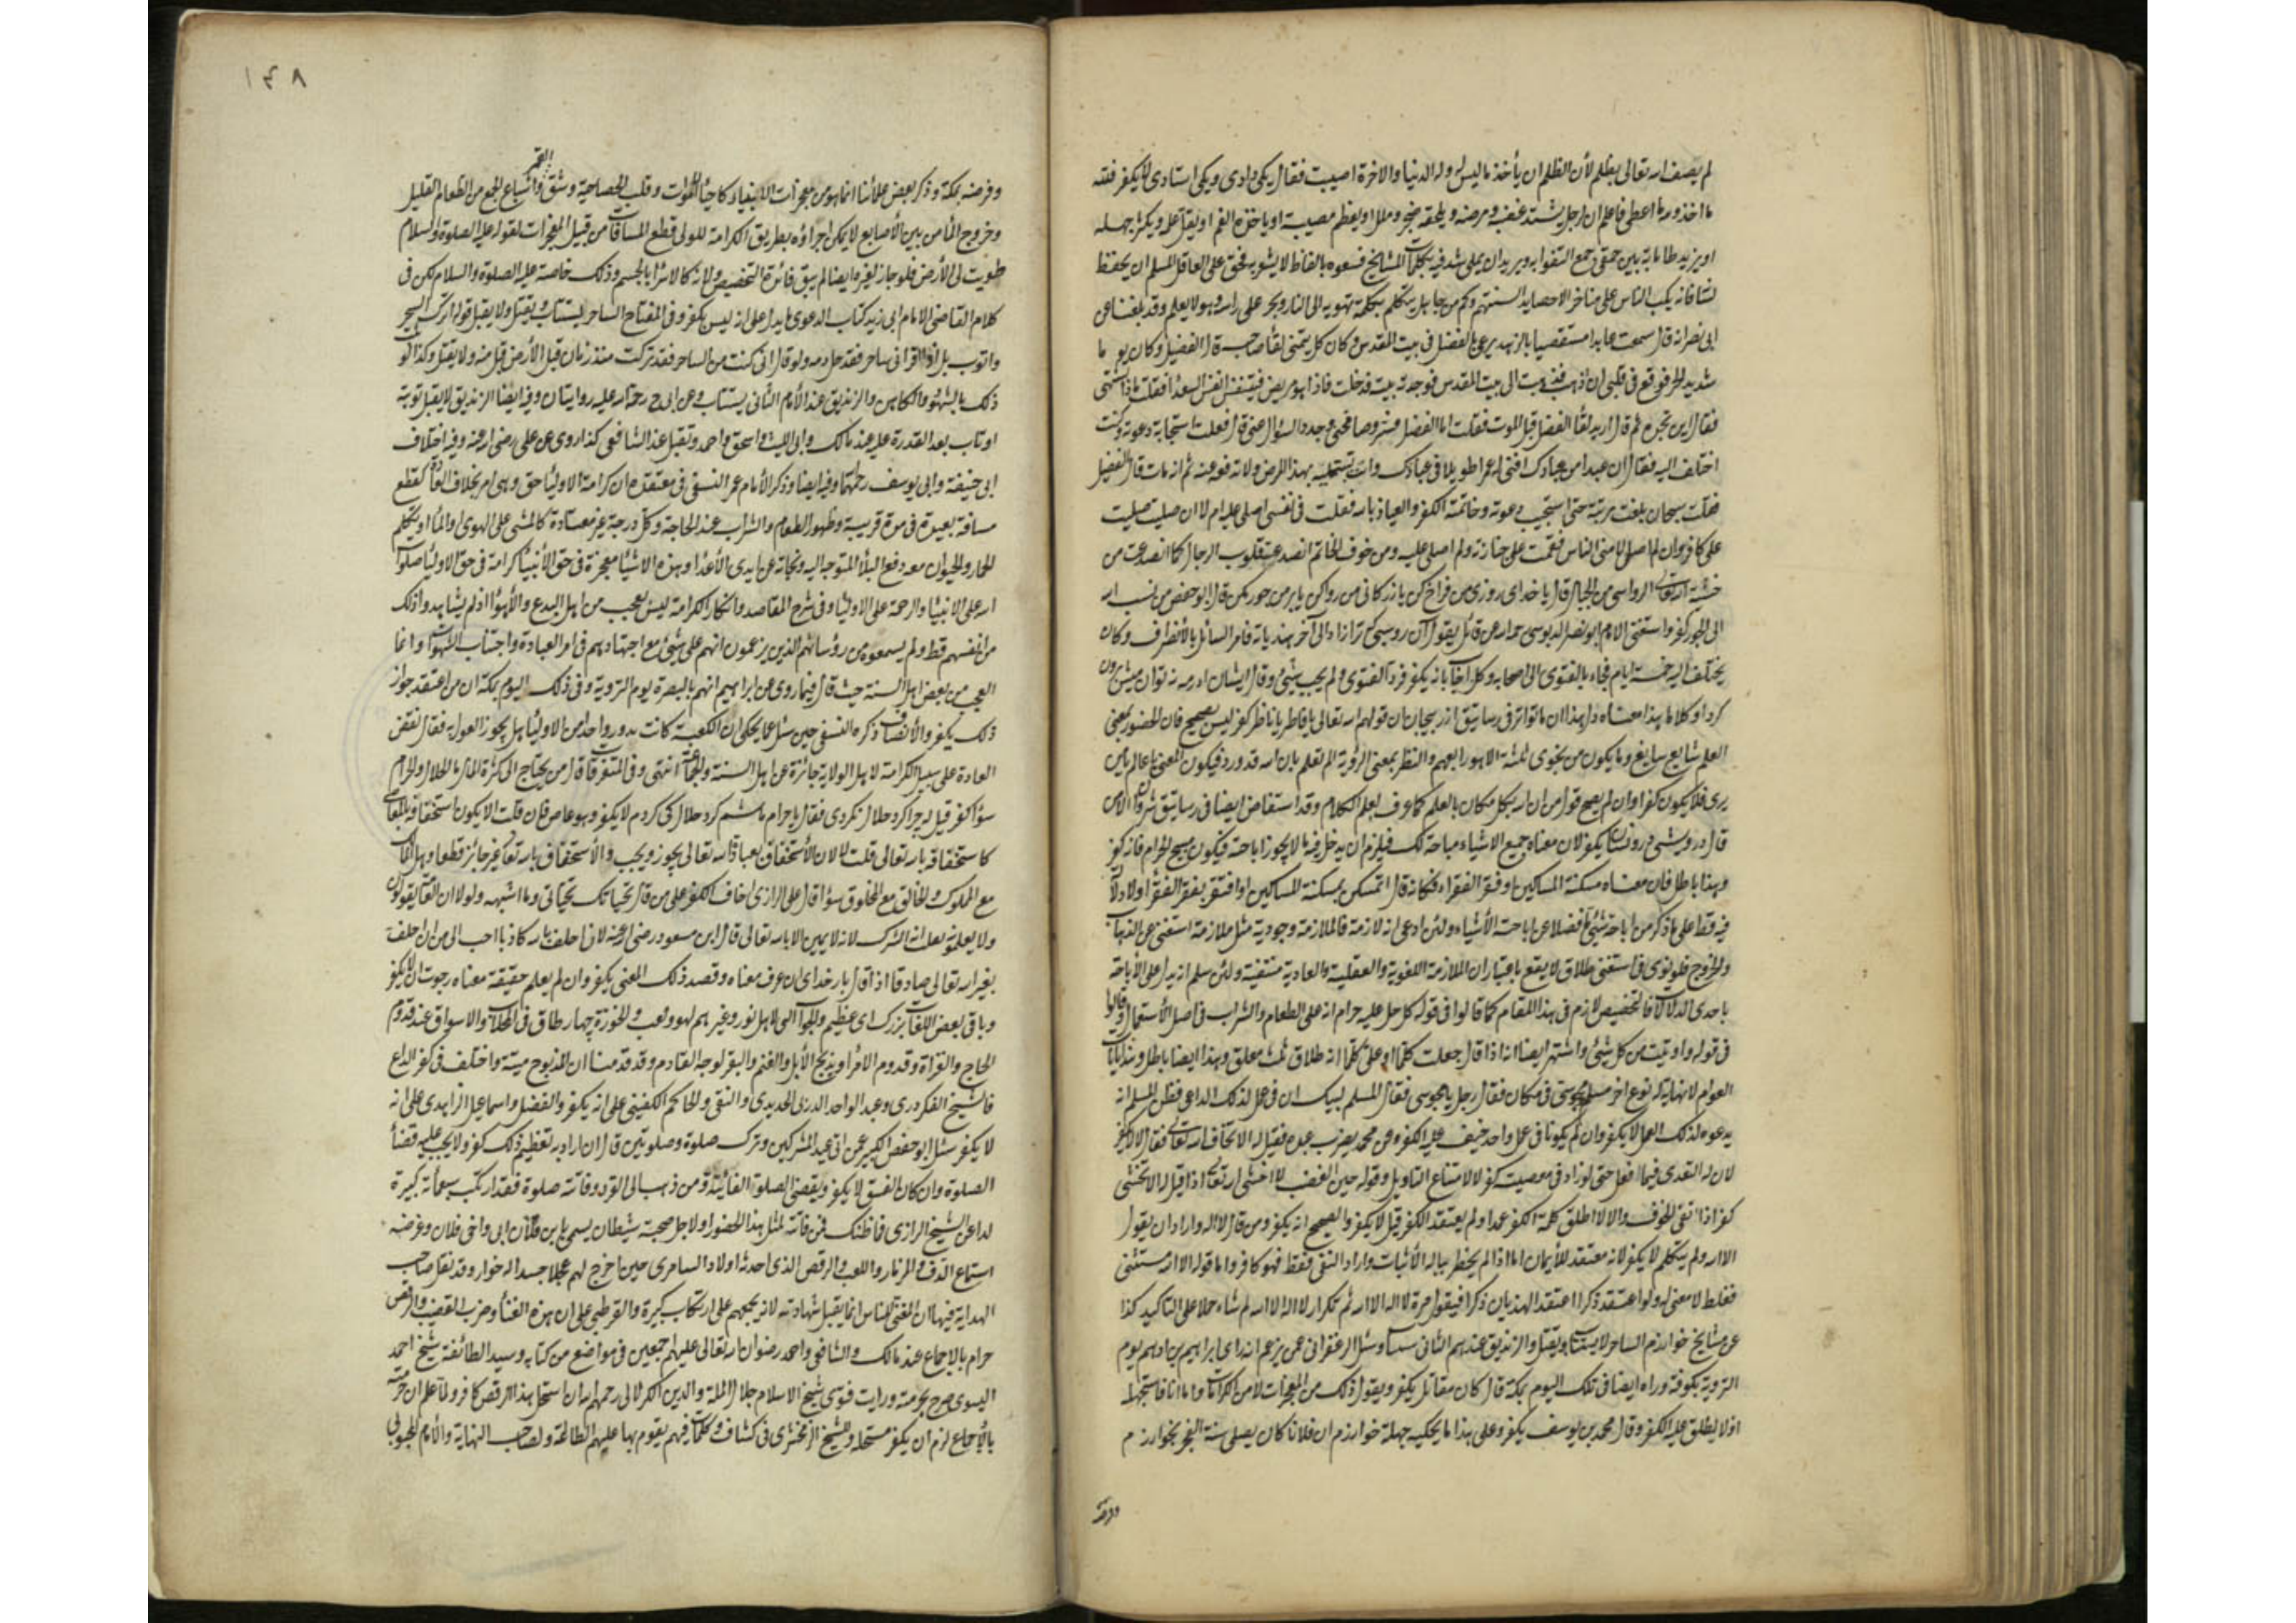 لم يصف الله تعالى بظلم لأن الظلم ان يأخذ ما ليس له وله الدنيا والاخرة اصيبت فقال يكى دادى ويكى استادى لا يكفر فقد
ما اخذ ورد ما اعطى فاعلم ان الرجل يشتد غضبه ومرضه ويلحقه ضجر وملل او يعظم مصيبته او ياخذه الغم او يقل علمه ويكثر جهله
لسانه فانه يكب الناس على مناخرهم الا حصايد السنتهم وكم من جاهل يتكلم بكلمة تهوى به الى النار ويجر على راسه وهو لا يعلم وقد بلغنا عن
ابى نصر انه قال سمعت عابدا بالزهد يرعى الفضل فى بيت المقدس وكان كل يتمنى لقا صاحبه قال الفضيل وكان يوما
شديد الحر فوقع فى قلبى ان اذهب فذهبت الى بيت المقدس فوجدته ببيته فدخلت فاذا هو مريض فيتنفس انفس السعدا فقلت ماذا تشتهى
اختلف اليه فقال ان عبدا من عبادك افنى له عمرا طويلا فى عبادتك وانت تبتليه بهذا المرض ولا ترفعه عنه ثم انه مات قال الفضيل
فقلت سبحان بلغت مرتبته حتى استجيب دعوته وخاتمته الكفر والعياذ بالله فقلت فى نفسى اصلى عليه ام لا ان صليت صليت
على كافر وان لم اصل لامنى الناس فقمت على جنازته ولم اصل عليه ومن خوف الخاتم انصدعت قلوب الرجال كما انصدعت من
خشية الله تعالى الرواسى من الجبال قال يا خداى روزى من فراخ كن يا زركانى من روا كن يا بر من جور مكن قال ابو حفص من نسب الله
الى الجور كفر واستفتى الامام ابو نصر الدبوسى
يختلف اليه خمسة ايام فجاء بالفتوى الى اصحابه وكل اجاب بانه يكفر فرد الفتوى ولم يجب بشئ
كرد او كلاما هذا معناه دل هذا ان ما تواتر فى رساتيق اذربيجان ان قولهم الله تعالى يا حاضر يا ناظر كفر ليس بصحيح فان الحضور بمعنى
العلم شايع سايغ وما يكون من نجوى ثلثة الا هو رابعهم والنظر بمعنى الرؤية الم تعلم بان الله قد ورد فيكون المعنى يا عالم يا من
يرى فلا يكون كفرا وان لم يصح قول من ان الله بكل مكان بالعلم كما عرف بعلم الكلام وقد استفاض ايضا فى رساتيق
قال درويشى درويشان يكفر لان معناه جميع الاشياء مباحة لك فيلزم ان يدخل فيه ما لا يجوز اباحته فيكون مبيح الحرام فانه كفر
وهذا باطل فان معناه مسكنة المساكين او فقر الفقراء فكانه قال اتمسكن بمسكنة المساكين او افتقر بفقر الفقراء
فيه قطعا على ما ذكر من اباحة شئ فضلا عن اباحة الأشياء ولئن ادعى انه لازمه فالملازمة وجودية مثل ملازمة استفتى عن الذهاب
والخروج فلو نوى فى استفتى طلاق لا يقع باعتبار ان الملازمة اللغوية والعقلية والعادية منتفية ولئن سلم انه يدل على الأباحة
باحدى الدلالات فالتخصيص لازم فى هذا المقام كما قالوا فى قوله كل حل عليه حرام انه على الطعام والشراب فى اصل الأستعمال وقالوا
فى قوله واوتيت من كل شئ واشتهر ايضا انه اذا قال جعلت كلما او على كلما انه طلاق ثلث معلق وهذا ايضا باطل
العوام لانهاية له نوع اخر مسلم ومجوسى فى مكان فقال رجل يا مجوسى فقال المسلم لبيك ان فى عمل لذلك الداعى فظن المسلم انه
يدعوه لذلك العمل لا يكفر وان لم يكونا فى عمل واحد خيف عليه الكفر وعن محمد يضرب عبده فقيل له الا تخاف الله تعالى فقال لا لا يكفر
لان له التعدى فيما افعل حتى لو زاد فى معصيته كفر لامتناع التاويل وقوله حين الغضب لا اخشى الله تعالى اذا قيل له الا تخشى
كفر اذا نفى الخوف والا لا اطلق كلمة الكفر عمدا ولم يعتقد الكفر قيل لا يكفر والصحيح انه يكفر ومن قال لا اله واراد ان يقول
الا الله ولم يتكلم لا يكفر لانه معتقد للأيمان اما اذا لم يخطر بباله الأثبات واراد النفى فقط فهو كافر واما قوله الا الله مستثنى
فغلط لا معنى له ولو اعتقد ذكرا اعتقد الهذيان ذكرا فيقول مرة لا اله الا الله ثم تكرار لا اله الا الله لم شاء حملا على التاكيد كذا
عن مشايخ خوارزم الساحر لا يستتاب ويقتل والزنديق عندهم الثانى وسئل الزعفرانى عمن يزعم انه راى ابراهيم بن ادهم يوم
التروية بكوفة وراه ايضا فى تلك اليوم بمكة قال كان مقاتل يكفره ويقول ذلك من المعجزات لا من الكرامات واما انا فاستجهله
اولا يطلق عليه الكفر وقال محمد بن يوسف يكفر وعلى هذا ما يحكيه جهلة خوارزم ان فلانا كان يصلى سنة الفجر بخوارزم
وفرضه
١٣٨
القمر
وفرضه بمكة وذكر بعض علمائنا انما هو من معجزات الانبياء كاحياء الموات وقلب العصا حية وشق واشباع الجمع من الطعام القليل
وخروج الماء من بين الأصابع لا يمكن اجراؤه بطريق الكرامة للولى قطع المسافات من قبيل المعجزات لقوله عليه الصلوة والسلام
طويت لى الأرض فلو جاز لغيره ايضا لم يبق فائدة التخصيص ولانه كالاسراء بالجسم وذلك خاصة عليه الصلوة والسلام لكن فى
كلام القاضى الامام ابى زيد كتاب الدعوى ما يدل على انه ليس بكفر وفى المفتاح الساحر يستتاب ويقتل ولا يقبل قوله اترك السحر
واتوب بل اذا اقر انى ساحر فقد حل دمه ولو قال انى كنت من الساحر فقد تركت منذ زمان قبل الأرض قبل منه ولا يقتل وكذا لو
ذلك بالشهود والكاهن والزنديق عند الأمام الثانى يستتاب وعن ابى ح رحمة الله عليه روايتان وفيه ايضا الزنديق لا يقبل توبته
او تاب بعد القدرة عليه عند مالك وابى الليث واسحق واحمد وتقبل عند الشافعى كذا روى عن على رضى الله عنه وفيه اختلاف
ابى حنيفة وابى يوسف رحمهما وفيه ايضا وذكر الأمام عمر النسفى فى معتقده ان كرامة الاوليا حق وهى امر بخلاف العادة كقطع
مسافة بعيدة فى مدة قريبة وظهور الطعام والشراب عند الحاجة وكل درجة غير معتادة كالمشى على الهوى والماء او يتكلم
الحمار والحيوان معه ودفع البلأ المتوجه اليه ونجاته عن ايدى الأعدا وهذه الاشيا معجزة فى حق الأنبيا كرامة فى حق الاوليا صلوات
الله على الانبيا والرحمة على الاوليا وفى شرح المقاصد وانكار الكرامة ليس بعجب من اهل البدع والأهواء اذ لم يشاهدوا ذلك
من انفسهم قط ولم يسمعوه من رؤسائهم الذين يزعمون انهم على شئ مع اجتهادهم فى امر العبادة واجتناب الشهوات وانما
العجب من بعض اهل السنة حيث قال فيما روى عن ابراهيم انهم بالبصرة يوم التروية وفى ذلك اليوم بمكة ان من اعتقد جواز
ذلك يكفر والأنصاف ذكره النسفى حين سئل عما يحكى ان الكعبة كانت بدور واحد من الاوليا هل يجوز القول به فقال نقض
العادة على سبيل الكرامة لاهل الولاية جائزة عن اهل السنة والجماعة انتهى وفى المتفرقات قال من يحتاج الى كثرة المال ما الحلال والحرام
سؤا كفر قيل له چرا گرد حلال نگردى فقال يا حرام باشم گرد حلال كى گردم لا يكفر وهو عاص فان قلت الا يكون استخفاف
كاستخفافه بالله تعالى قلت لا لان الأستخفاف بعباد الله تعالى يجوز ويجب والأستخفاف بالله تعالى غير جائز قطعا
مع المملوك والخالق مع المخلوق سؤا قال على الرازى اخاف الكفر على من قال بحياتك بحياتى وما اشبهه ولولا ان العامة يقولون
ولا يعلمونه لقلت انه الشرك لانه لا يمين الا بالله تعالى قال ابن مسعود رضى الله عنه لان احلف بالله كاذبا احب الى من ان احلف
بغير الله تعالى صادقا اذا قال بار خداى ان عرف معناه وقصد ذلك المعنى يكفر وان لم يعلم حقيقة معناه رجوت ان لا يكفر
وباقى بعض اللغات بزرك اى عظيم
الحاج والغزاة وقدوم الامراء وبذبح الأبل والغنم والبقر لوجه القادم وقد قدمنا ان المذبوح ميتة واختلف فى كفر الذابح
فالشيخ الفكردرى وعبد الواحد الدرنى الحديدى والنفى والحاكم الكفينى على انه يكفر والفضل واسماعيل الزاهدى على انه
لا يكفر سئل ابو حفص الكبير عمن اتى عيد المشركين وترك صلوة وصلوتين قال ان اراد به تعظيم ذلك كفر ولا يجب عليه قضأ
الصلوة وان كان الفسق لا يكفر ويقضى الصلوة الفائتة ومن ذهب الى القرد وفاتته صلوة فقد ارتكب سبعمأئة كبيرة
لداعى الشيخ الرازى فما ظنك فمن فاتته لمثل هذا الحضور او لاجل صحبة شيطان يسمى يا بن فلان ابى واخى فلان وغرضه
استماع الدف والمزمار واللعب والرقص الذى احدثه اولاد السامرى حين اخرج لهم عجلا جسدا له خوار وقد نقل صاحب
الهداية فيها ان المغنى للناس انما يقبل شهادته لانه يجمعهم على ارتكاب كبيرة والقرطبى على ان هذه الغناء وضرب القضيب والرقص
حرام بالاجماع عند مالك والشافعى واحمد رضوان الله تعالى عليهم اجمعين فى مواضع من كتابه وسيد الطائفة شيخ احمد
اليسوى صرح بحرمته ورايت فتوى شيخ الاسلام جلال الملة والدين الكرلانى رحمهم الله ان استحل هذا الرقص كافر ولما علم ان حرمته
بالأجماع لزم ان يكفر مستحله وللشيخ الزمخشرى فى كشافه كلمات فيهم يقوم بها عليهم الطامة ولصاحب النهاية والأمام المحبوبى